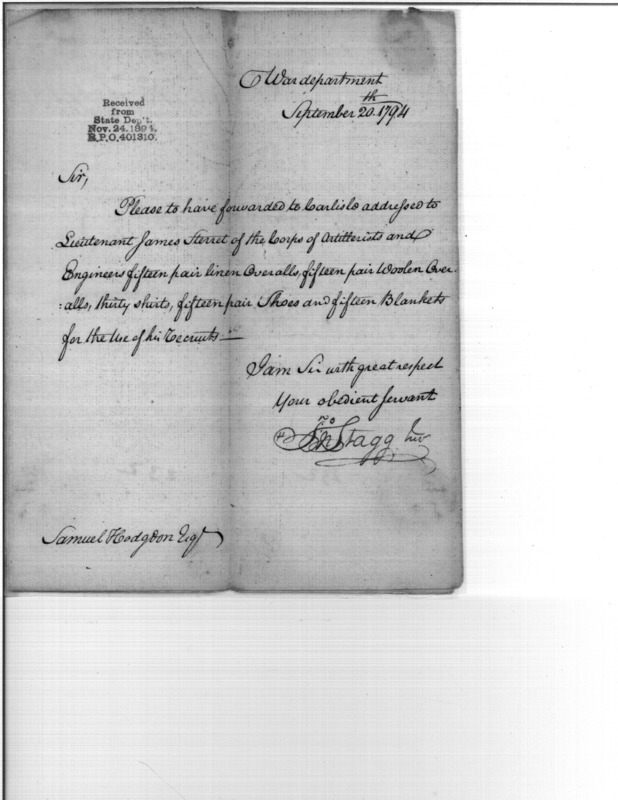 Received
from
State Dep't.
Nov. 24. 1894.
R.P.O. 401310.
War department
September 20th 1794
Sir,
Please to have forwarded to Carlisle addressed to
Lieutenant James Sterret of the Corps of Artillerists and
Engineers fifteen pair linen Overalls, fifteen pair Woolen Over-
:alls, thirty shirts, fifteen pair Shoes and fifteen Blankets
for the Use of his Recruits—
I am Sir with great respect
Your obedient Servant
Jno Stagg Junr
Samuel Hodgdon Esqr